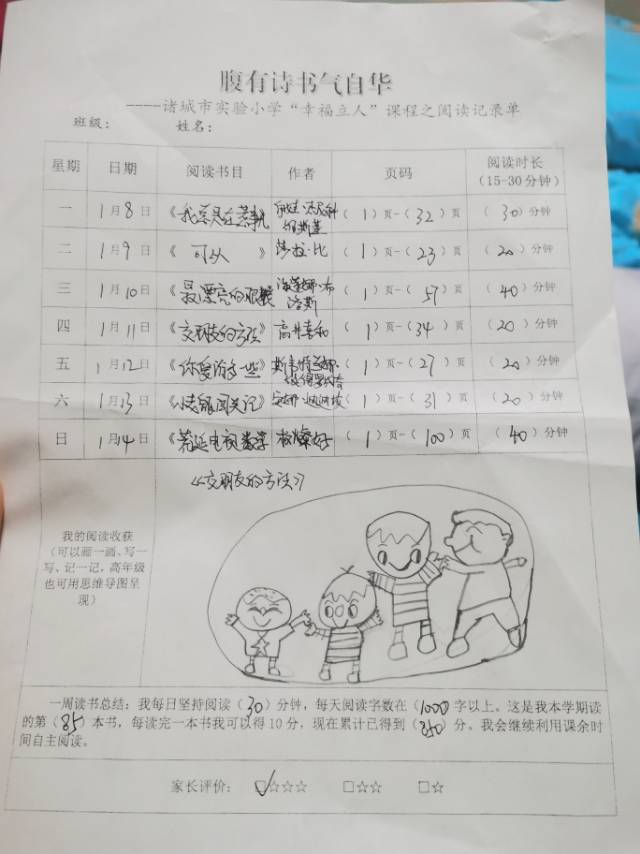 腹有诗书气自华
----诸城市实验小学“幸福立人”课程之阅读记录单
班级： 姓名：
星期 日期 阅读书目 作者 页码 阅读时长（15-30分钟）
一 1月8日 （1）页-（32）页 （30）分钟
二 1月9日 《可以》 莎拉·比 （1）页-（23）页 （20）分钟
三 1月10日 《最漂亮的 （1）页-（57）页 （40）分钟
四 1月11日 《交朋友的方法》 高井喜和 （1）页-（34）页 （20）分钟
五 1月12日 （1）页-（27）页 （20）分钟
六 1月13日 （1）页-（31）页 （20）分钟
日 1月14日 （1）页-（100）页 （40）分钟
《交朋友的方法》
我的阅读收获
（可以画一画、写一
写、记一记，高年级
也可用思维导图呈
现）
一周读书总结：我每日坚持阅读（30）分钟，每天阅读字数在（1000字以上。这是我本学期读
的第（85）本书，每读完一本书我可以得10分，现在累计已得到（850）分。我会继续利用课余时
间自主阅读。
家长评价： ☑☆☆☆ □☆☆ □☆